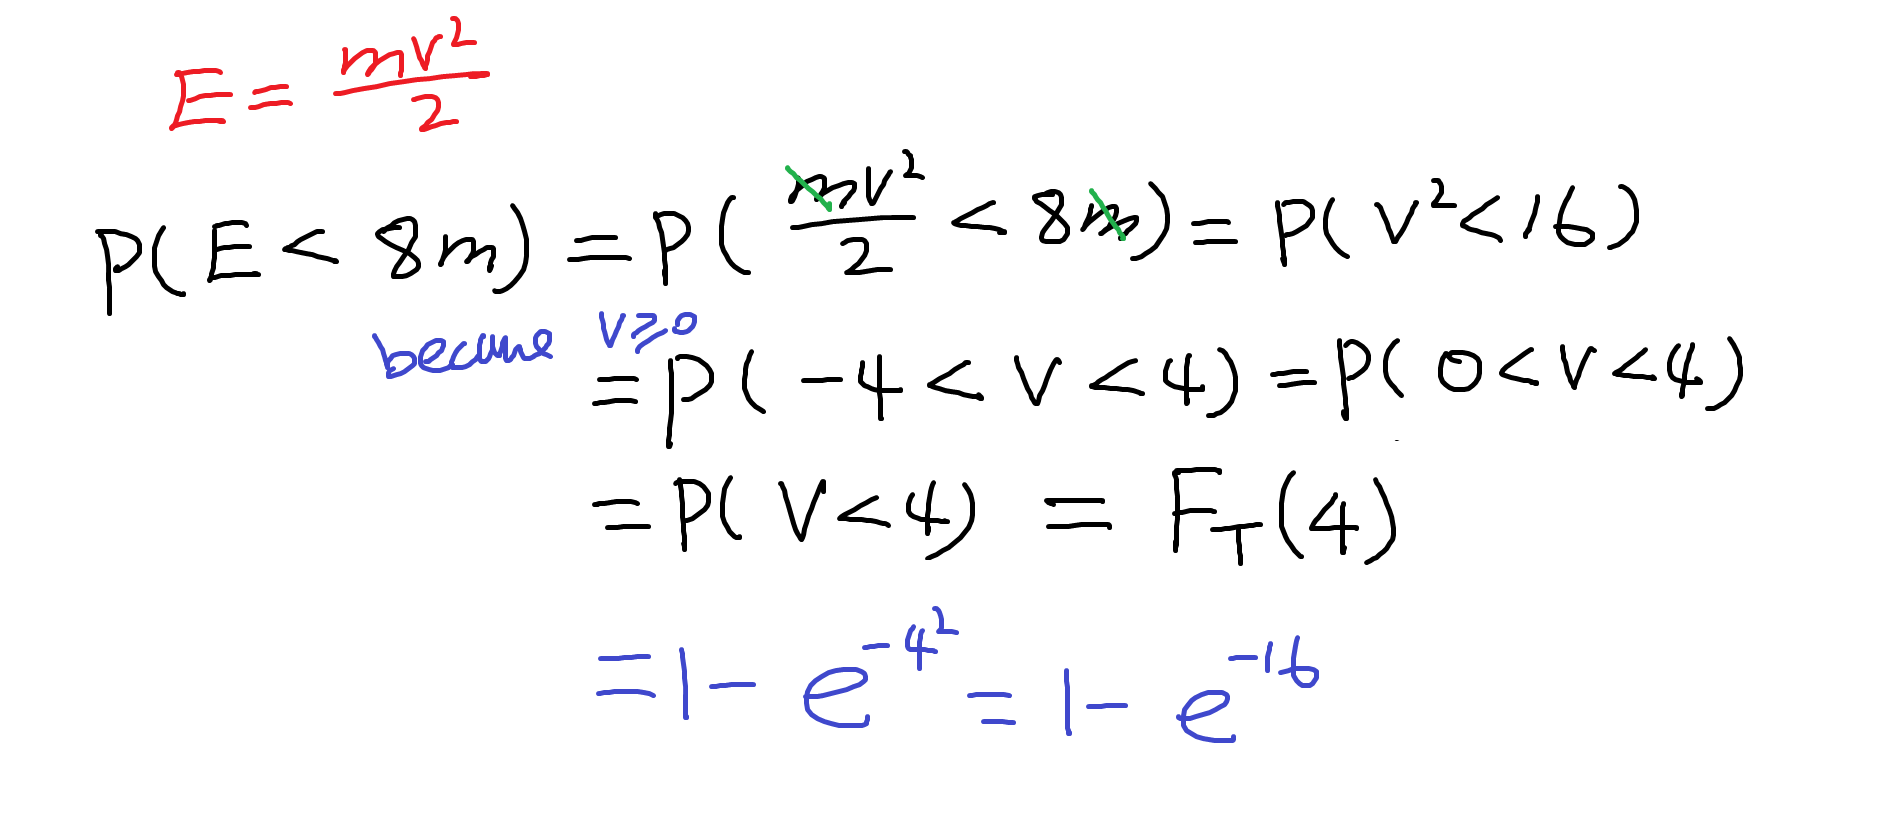 E = mv²/2
P(E < 8m) = P( mv²/2 < 8m) = P( v² < 16)
because v ≥ 0
= P( -4 < v < 4) = P( 0 < v < 4)
= P( V < 4) = F_T(4)
= 1 - e^{-4²} = 1 - e^{-16}